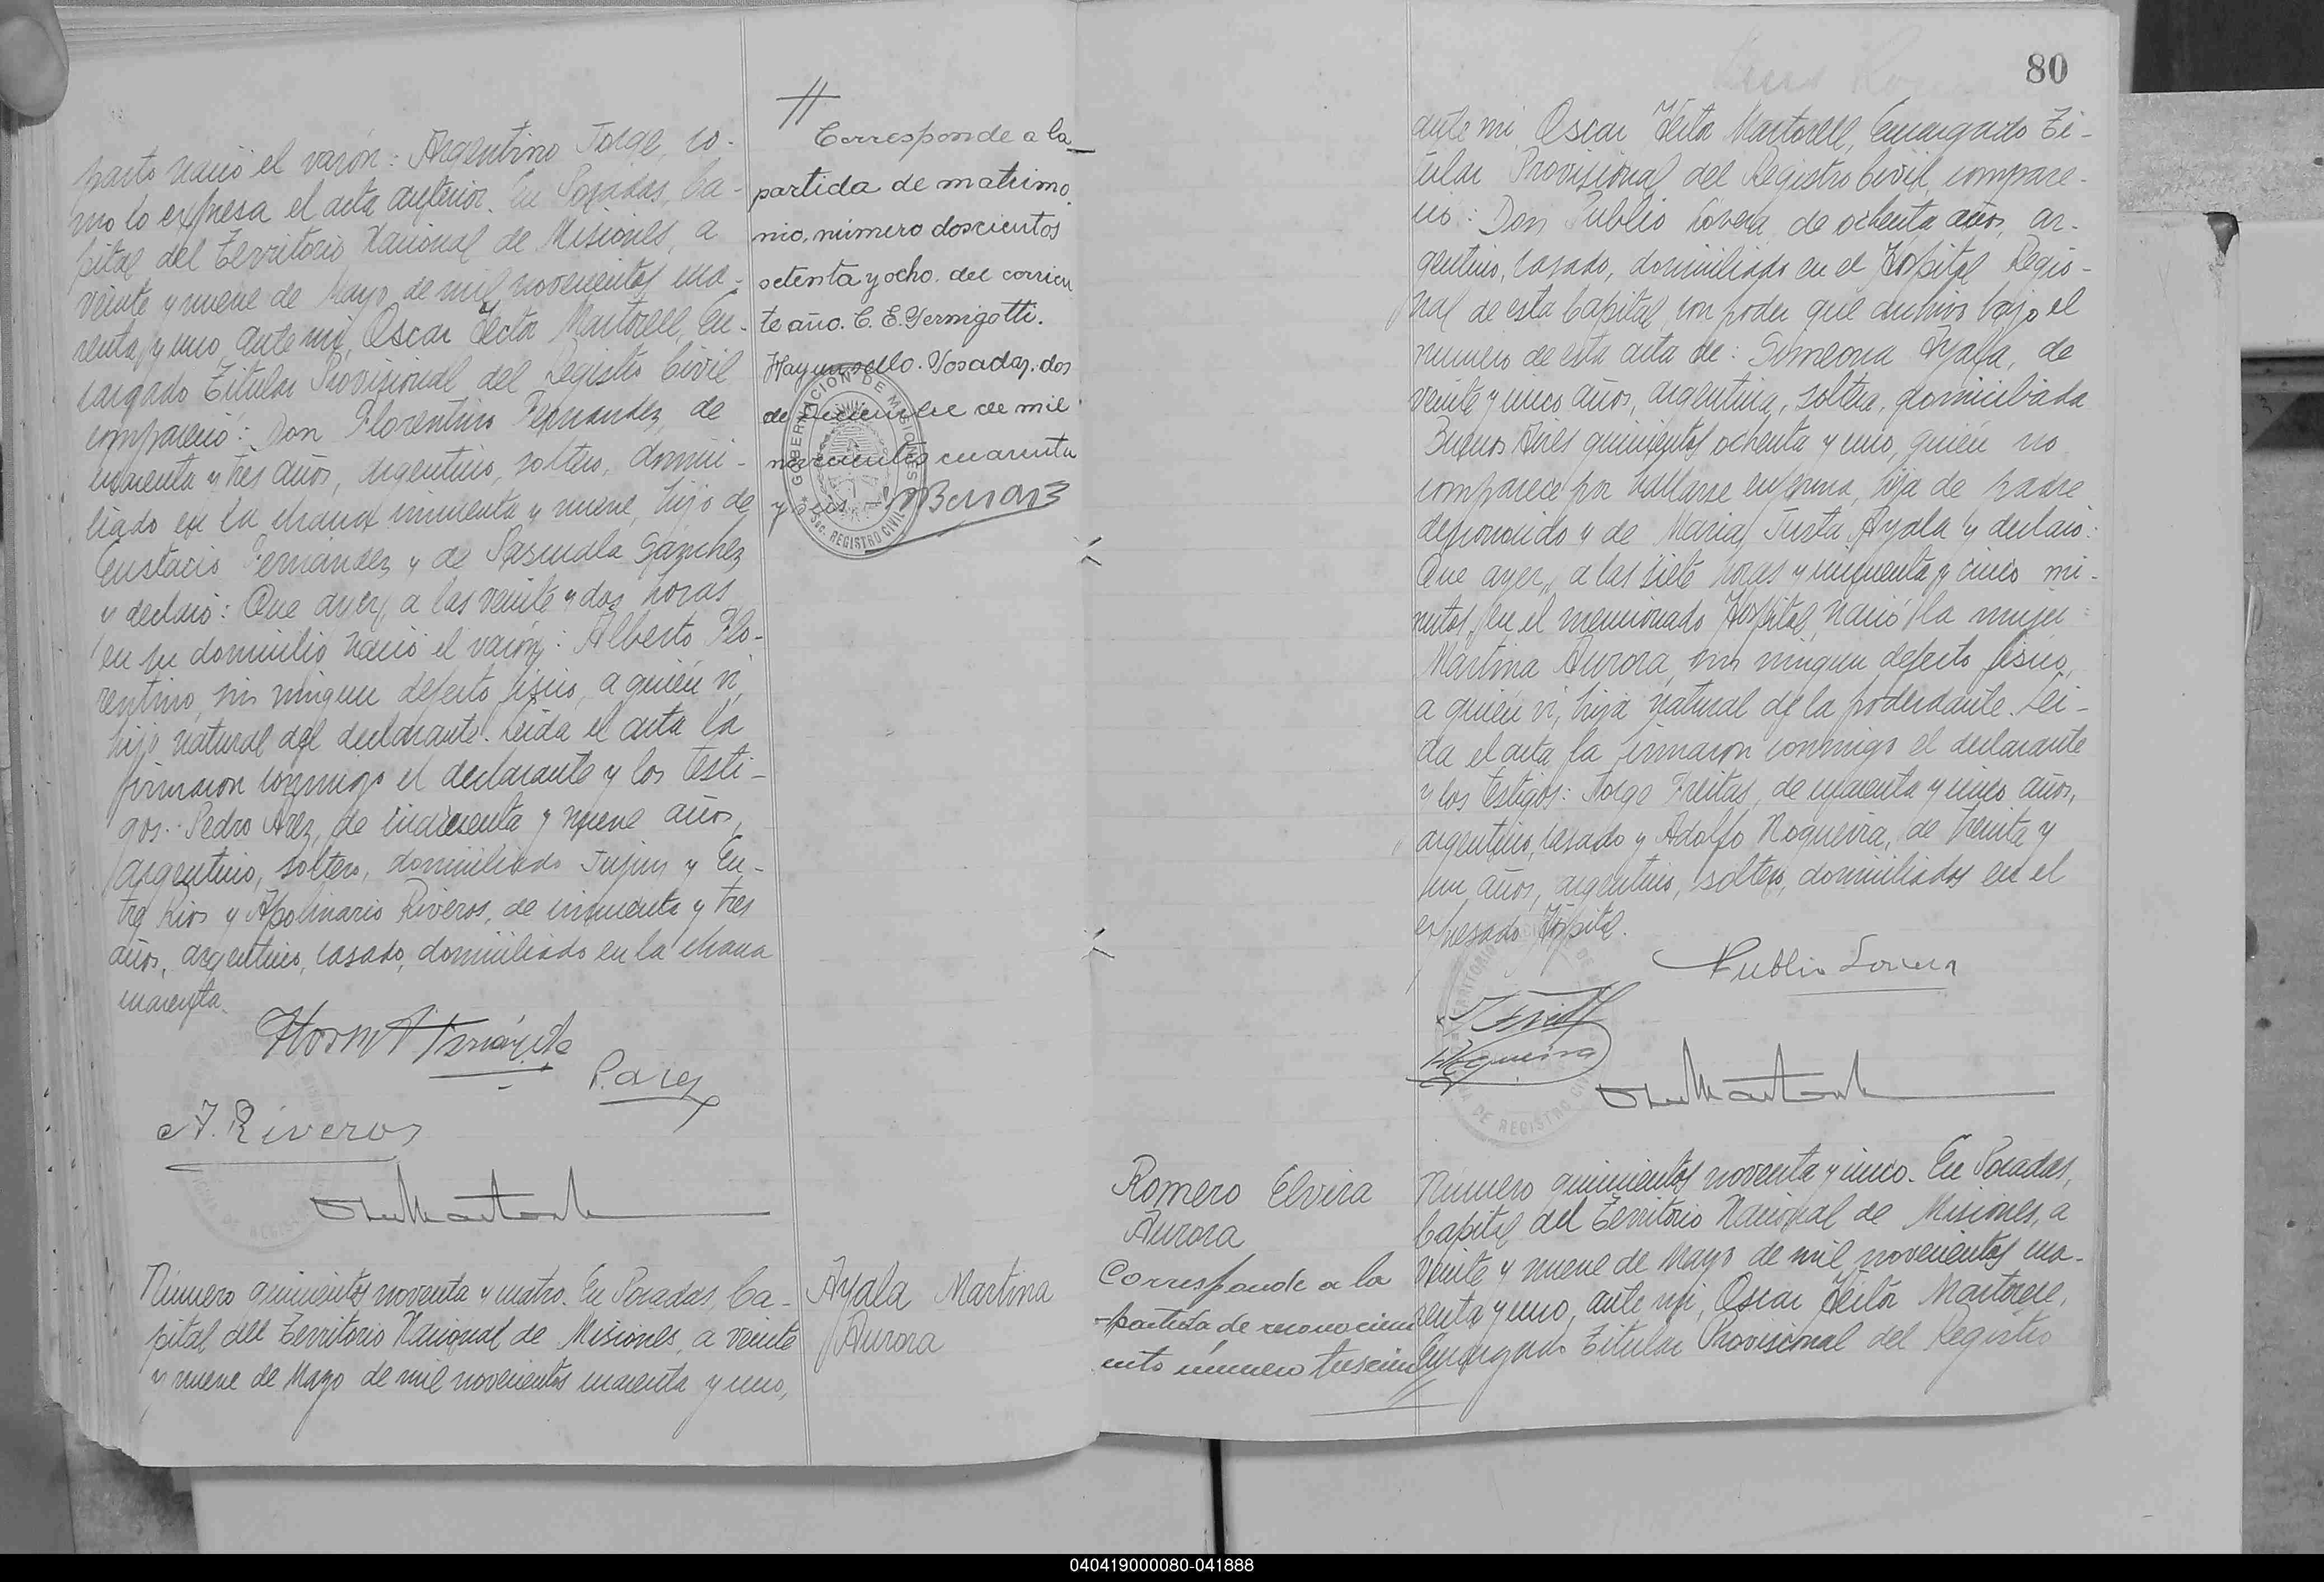 parto nació el varón: Argentino Jorge, co-
mo lo expresa el acta anterior. En Posadas, Ca-
pital del Territorio Nacional de Misiones, a
veinte y nueve de Mayo de mil novecientos cua-
renta y uno, ante mi, Oscar Héctor Martorell, En-
cargado Titular Provisional del Registro Civil
compareció: Don Florentino Fernández, de
cuarenta y tres años, argentino, soltero, domici-
liado en la chacra cincuenta y nueve, hijo de
Eustacio Fernández y de Pascuala Sánchez
y declaró: Que ayer, a las veinte y dos horas
en su domicilio nació el varón: Alberto Flo-
rentino, sin ningun defecto fisico, a quién vi,
hijo natural del declarante. Leida el acta la
firmaron conmigo el declarante y los testi-
gos: Pedro Arez, de cincuenta y nueve años,
argentino, soltero, domiciliado Jujuy y En-
tre Rios y Apolinario Riveros, de cincuenta y tres
años, argentino, casado, domiciliado en la chacra
cuarenta.
P. arez
A. Riveros
Número quinientos noventa y cuatro. En Posadas, Ca-
pital del Territorio Nacional de Misiones, a veinte
y nueve de Mayo de mil novecientos cuarenta y uno,
//
Corresponde a la
partida de matrimo-
nio, número doscientos
setenta y ocho. del corrien
te año. C. E. Germigotti.
Hay un sello. Posadas. dos
de diciembre de mil
novecientos cuarenta
y seis
GOBERNACION DE MISIONES
SEC. REGISTRO CIVIL
Ayala Martina
Aurora
80
ante mi, Oscar Héctor Martorell, Encargado Ti-
tular Provisional del Registro Civil, compare-
ció: Don Publio Lovera, de ochenta años, ar-
gentino, casado, domiciliado en el Hospital Regio-
nal de esta Capital, con poder que archivo bajo el
número de esta acta de: Simeona Ayala, de
veinte y cinco años, argentina, soltera, domiciliada
Buenos Aires quinientos ochenta y uno, quién no
comparece por hallarse enferma, hija de padre
desconocido y de Maria Justa Ayala y declaró:
Que ayer, a las siete horas y cincuenta y cinco mi-
nutos, en el mencionado Hospital, nació la mujer
Martina Aurora, sin ningun defecto fisico,
a quién vi, hija natural de la poderdante. Lei-
da el acta la firmaron conmigo el declarante
y los testigos: Jorge Freitas, de cuarenta y cinco años,
argentino, casado y Adolfo Nogueira, de treinta y
un años, argentino, soltero, domiciliados en el
expresado Hospital.
Publio Lovera
Nogueira
Romero Elvira
Aurora
Corresponde a la
partida de reconocimi
ento número trescien
Número quinientos noventa y cinco. En Posadas,
Capital del Territorio Nacional de Misiones, a
veinte y nueve de Mayo de mil novecientos cua-
renta y uno, ante mi, Oscar Héctor Martorell,
Encargado Titular Provisional del Registro
//
040419000080-041888